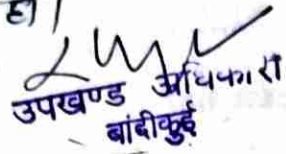 है।
उपखण्ड अधिकारी
बांदीकुई